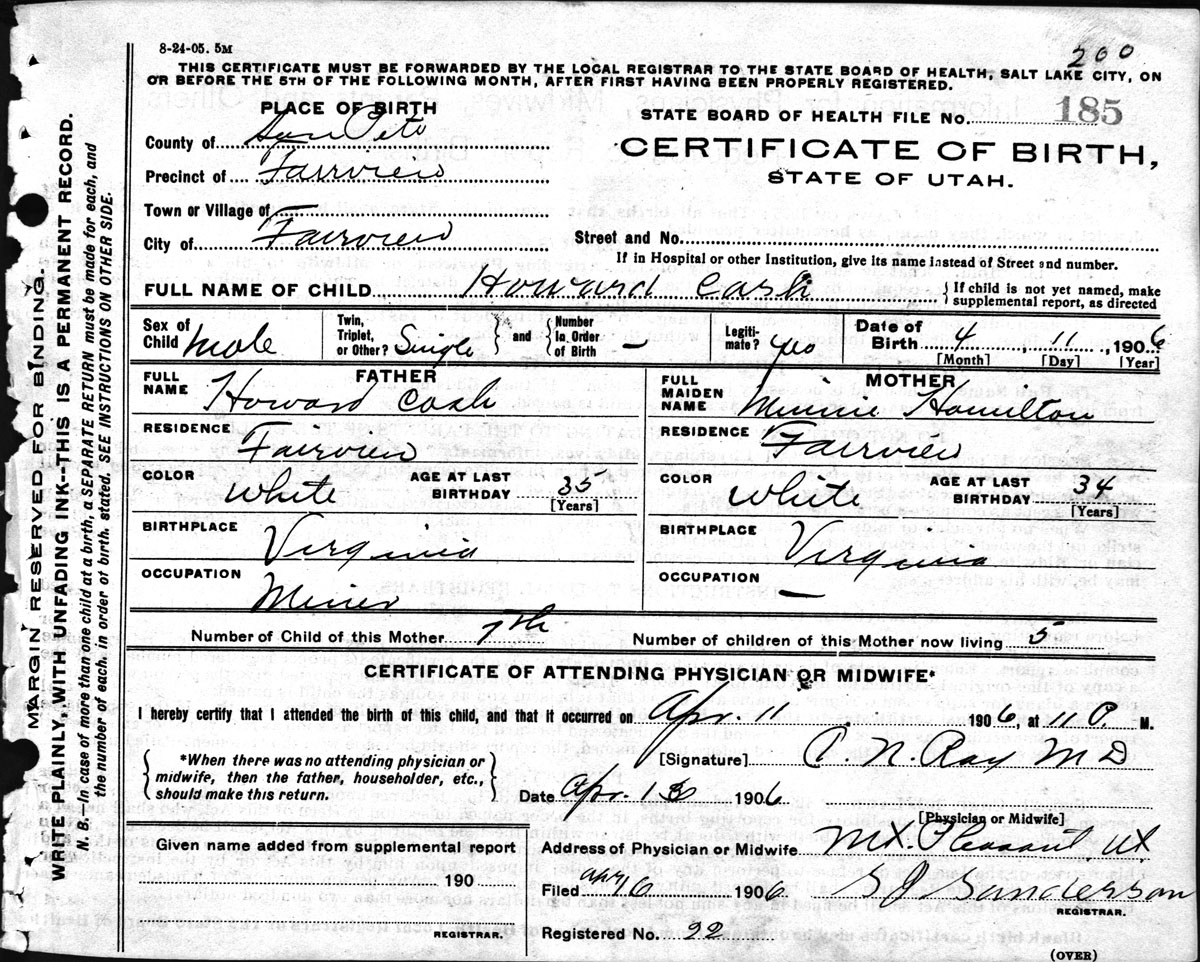 8-24-05. 5M
200
THIS CERTIFICATE MUST BE FORWARDED BY THE LOCAL REGISTRAR TO THE STATE BOARD OF HEALTH, SALT LAKE CITY, ON
OR BEFORE THE 5TH OF THE FOLLOWING MONTH, AFTER FIRST HAVING BEEN PROPERLY REGISTERED.
PLACE OF BIRTH
STATE BOARD OF HEALTH FILE No. 185
County of San Pete
CERTIFICATE OF BIRTH,
Precinct of Fairview
STATE OF UTAH.
Town or Village of
City of Fairview
Street and No.
If in Hospital or other Institution, give its name instead of Street and number.
FULL NAME OF CHILD Howard Cash { If child is not yet named, make
supplemental report, as directed
Sex of Child Male
Twin, Triplet, or Other? Single } and { Number in Order of Birth –
Legitimate? yes
Date of Birth 4, 11, 1906
[Month] [Day] [Year]
FATHER
FULL NAME Howard Cash
RESIDENCE Fairview
COLOR White AGE AT LAST BIRTHDAY 35
[Years]
BIRTHPLACE Virginia
OCCUPATION Miner
MOTHER
FULL MAIDEN NAME Minnie Hamilton
RESIDENCE Fairview
COLOR White AGE AT LAST BIRTHDAY 34
[Years]
BIRTHPLACE Virginia
OCCUPATION –
Number of Child of this Mother 7th Number of children of this Mother now living 5
CERTIFICATE OF ATTENDING PHYSICIAN OR MIDWIFE*
I hereby certify that I attended the birth of this child, and that it occurred on Apr. 11, 1906, at 11 P. M.
{ *When there was no attending physician or
midwife, then the father, householder, etc.,
should make this return. }
[Signature] A. N. Ray M D
Date Apr. 1906
[Physician or Midwife]
Given name added from supplemental report
190
REGISTRAR.
Address of Physician or Midwife Mt. Pleasant, Ut
Filed 1906 S J Sanderson
REGISTRAR.
Registered No. 22
(OVER)
MARGIN RESERVED FOR BINDING.
WRITE PLAINLY, WITH UNFADING INK--THIS IS A PERMANENT RECORD.
N. B.--In case of more than one child at a birth, a SEPARATE RETURN must be made for each, and
the number of each, in order of birth, stated. SEE INSTRUCTIONS ON OTHER SIDE.